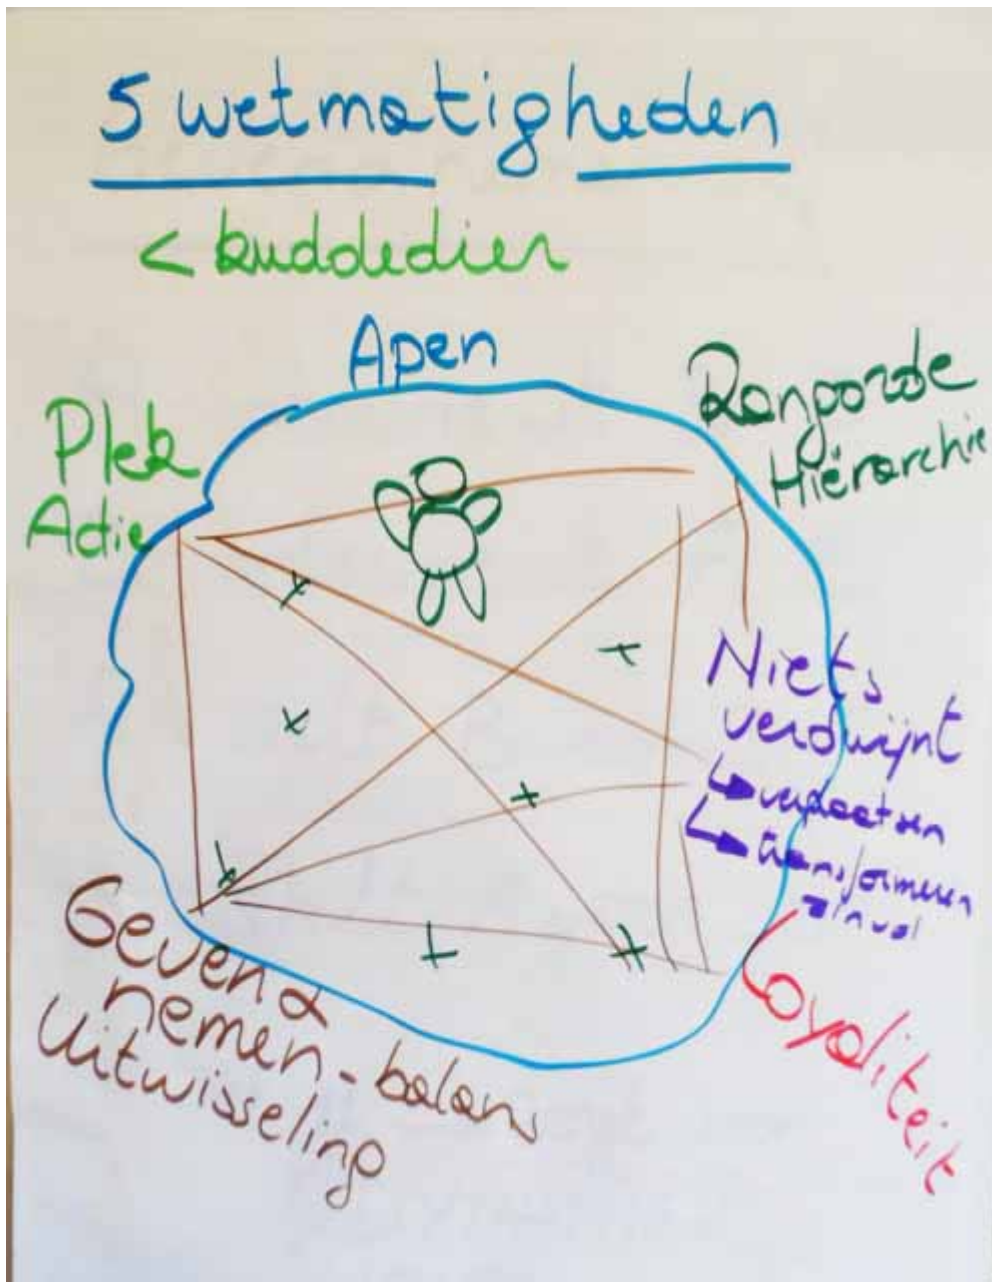 5 wetmatigheden
< kuddedier
Apen
Plek
Rangorde
Hiërarchie
Niets
verdwijnt
verplaatsen
transformeren
Geven &
nemen - balans
Uitwisseling
Loyaliteit